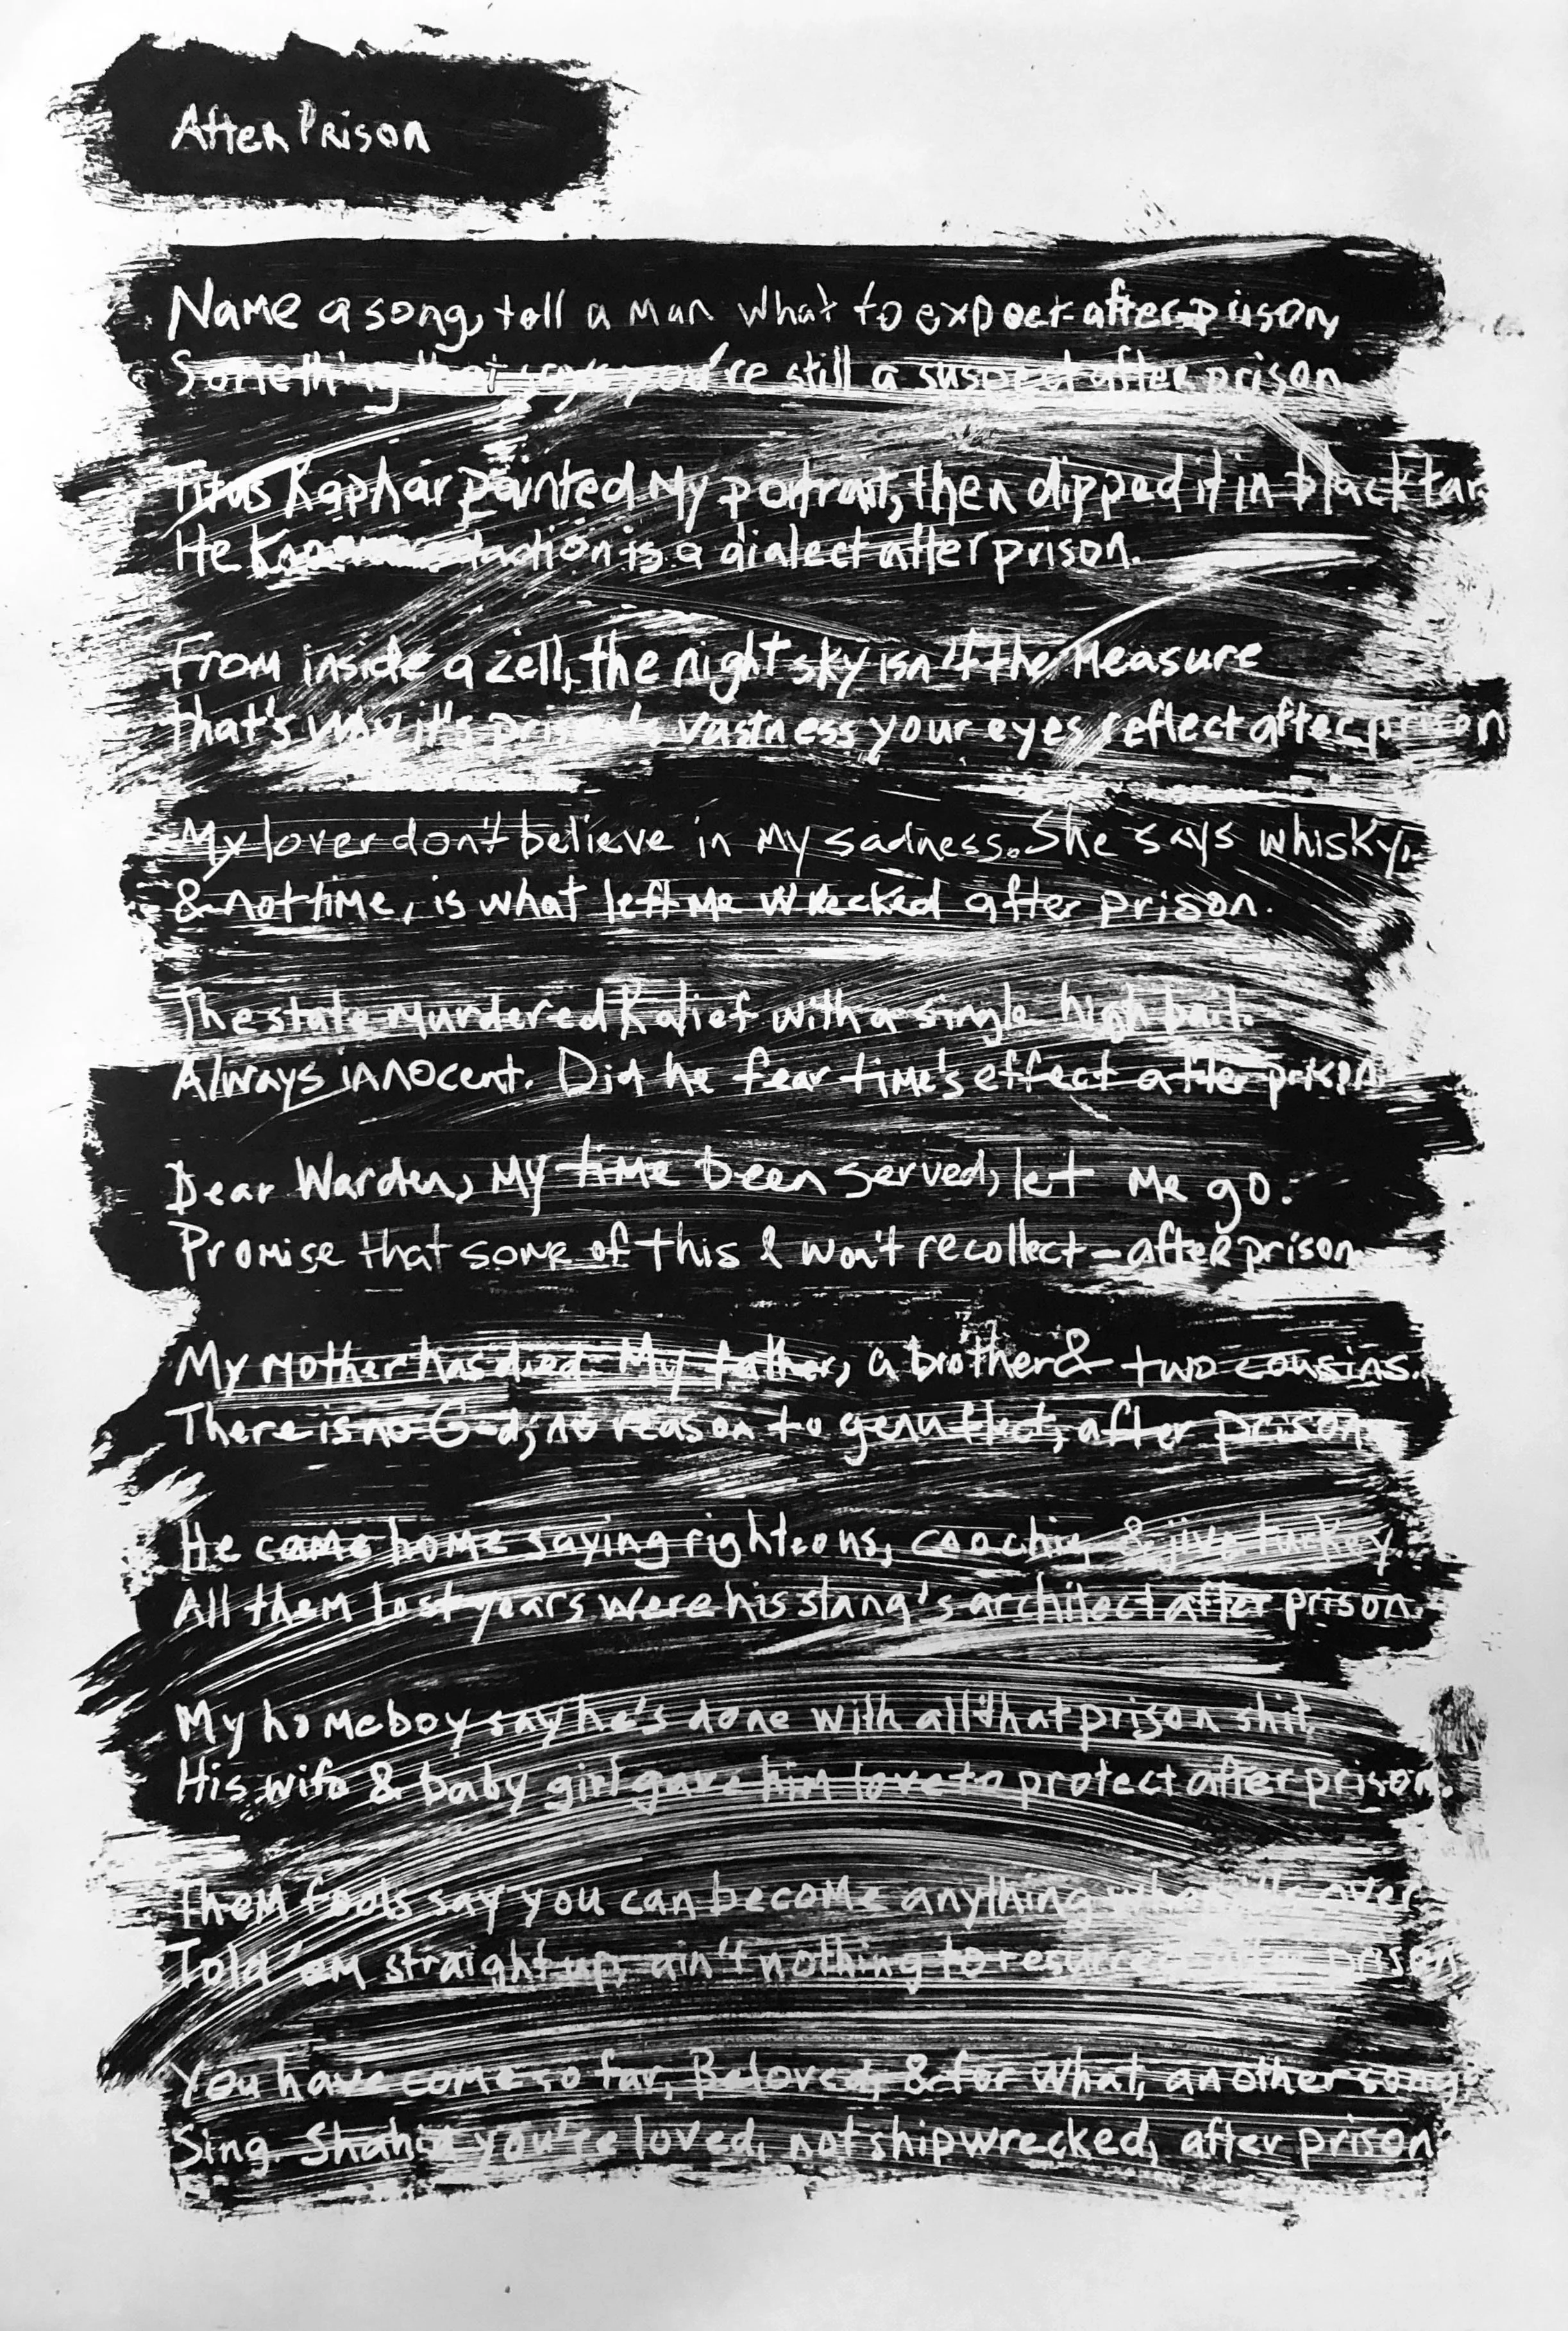 After Prison
Name a song, tell a man what to expect after prison,
Something that says you're still a suspect after prison
Titus Kaphar painted My portrait, then dipped it in black tar
He redaction is a dialect after prison.
From inside a cell, the night sky isn't the Measure
that's why it's prison's vastness your eyes reflect after prison
My lover don't believe in My sadness. She says whisky,
& not time, is what left Me wrecked after prison.
The state Murdered Kalief with a single high bail.
Always innocent. Did he fear time's effect after prison
Dear Warden, My time been served, let Me go.
Promise that some of this I won't recollect – after prison
My Mother has died. My father, a brother & two cousins.
There is no God; no reason to genuflect, after prison.
He came home saying righteous, coochie, & jive turkey.
All them lost years were his slang's architect after prison.
My homeboy say he's done with all that prison shit,
His wife & baby girl gave him love to protect after prison.
Them fools say you can become anything when it's over
Told 'em straight up, ain't nothing to resurrect after prison
You have come so far, Beloved, & for what, another song?
Sing. Shahid you're loved, not shipwrecked, after prison.